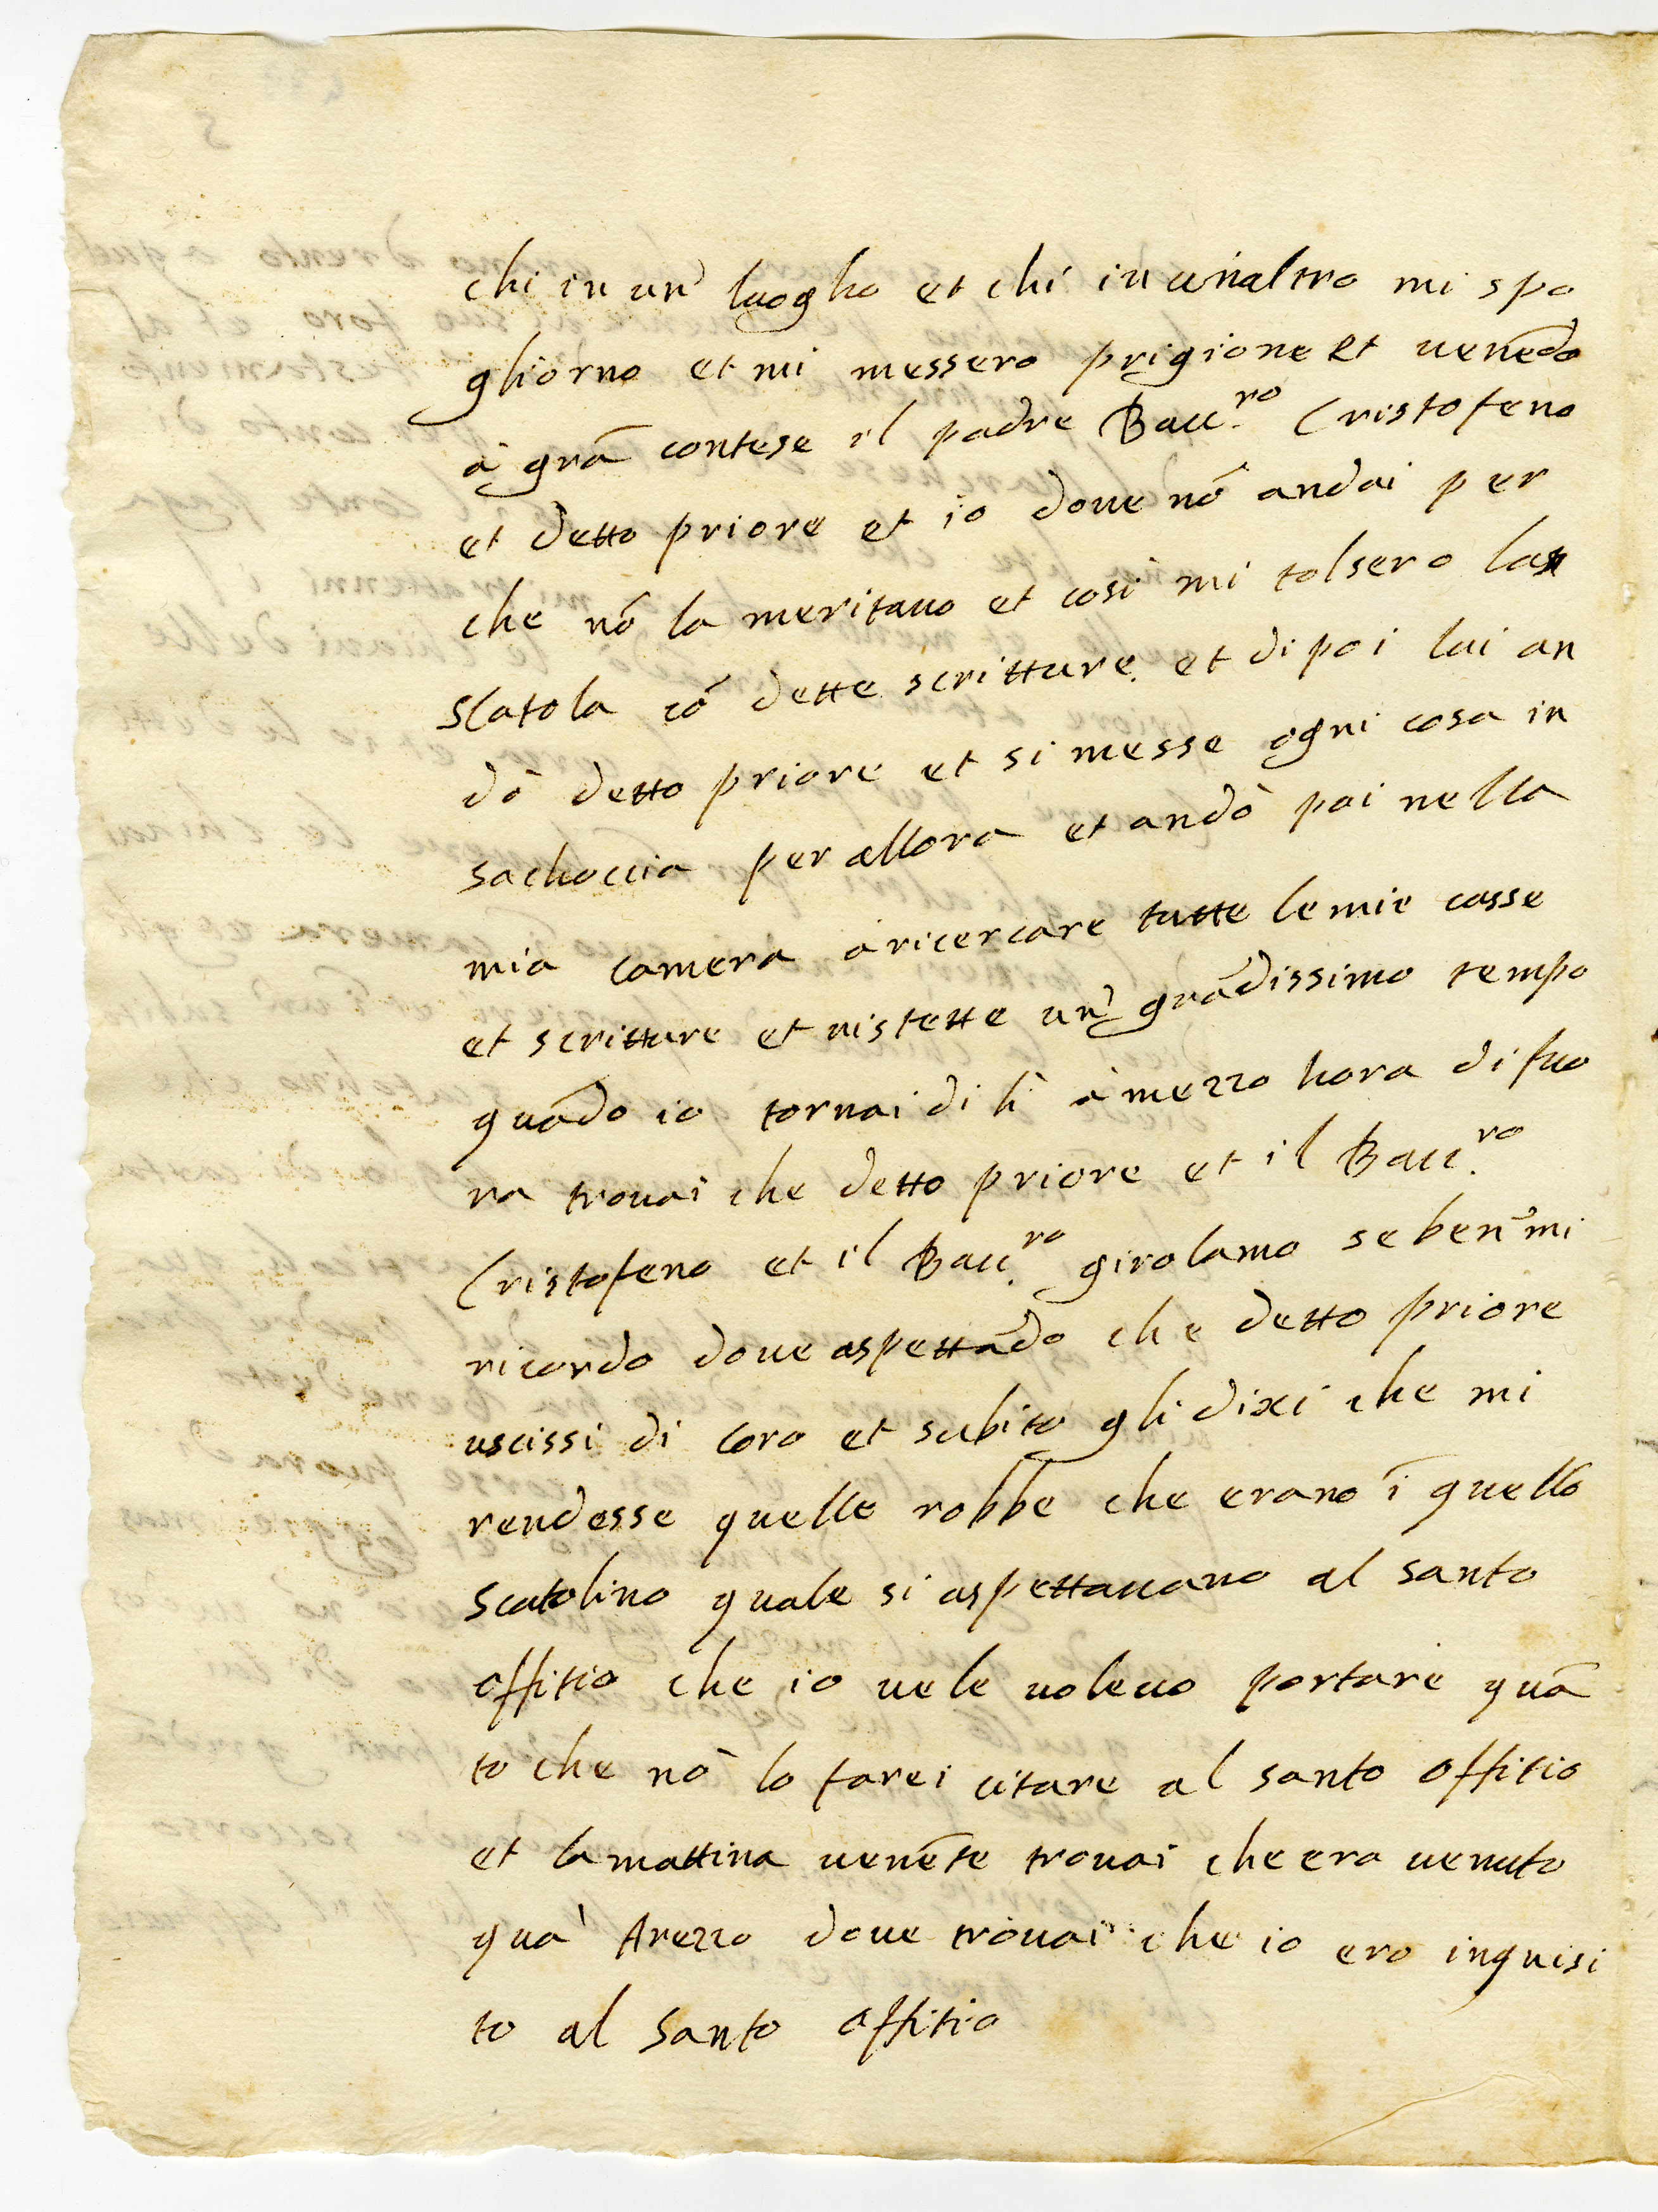 chi in un' luogho et chi in unaltro mi spo
gliorno et mi messero prigione et venēdo
à grā contese il padre Bacc.ro Cristofeno
et detto priore et io doue nō andai per
che nō la meritauo et cosi mi tolsero las
scatola cō dette scritture et dipoi lui an
dò detto priore et si messe ogni cosa in
sachoccia per allora et andò poi nella
mia camera à ricercare tutte le mie casse
et scritture et vi stette un' grādissimo tempo
quādo io tornai di li à mezzo hora di fuo
ra trouai che detto priore et il Bacc.ro
Cristofeno et il Bacc.ro girolamo se ben' mi
ricordo doue aspettādo che detto priore
uscissi di coro et subito gli dixi che mi
rendesse quelle robbe che erano ī quello
scatolino quale si aspettauano al santo
offitio che io ue le uoleuo portare quā
to che nò lo farei citare al santo offitio
et la mattina uenēte trouai che era uenuto
quà Arezzo doue trouai che io ero inquisi
to al santo offitio